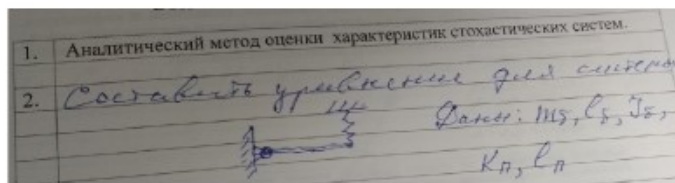 1. Аналитический метод оценки характеристик стохастических систем.
2. Составить уравнение для системы
Данн: m₅, l₅, J₅,
Kп, lп